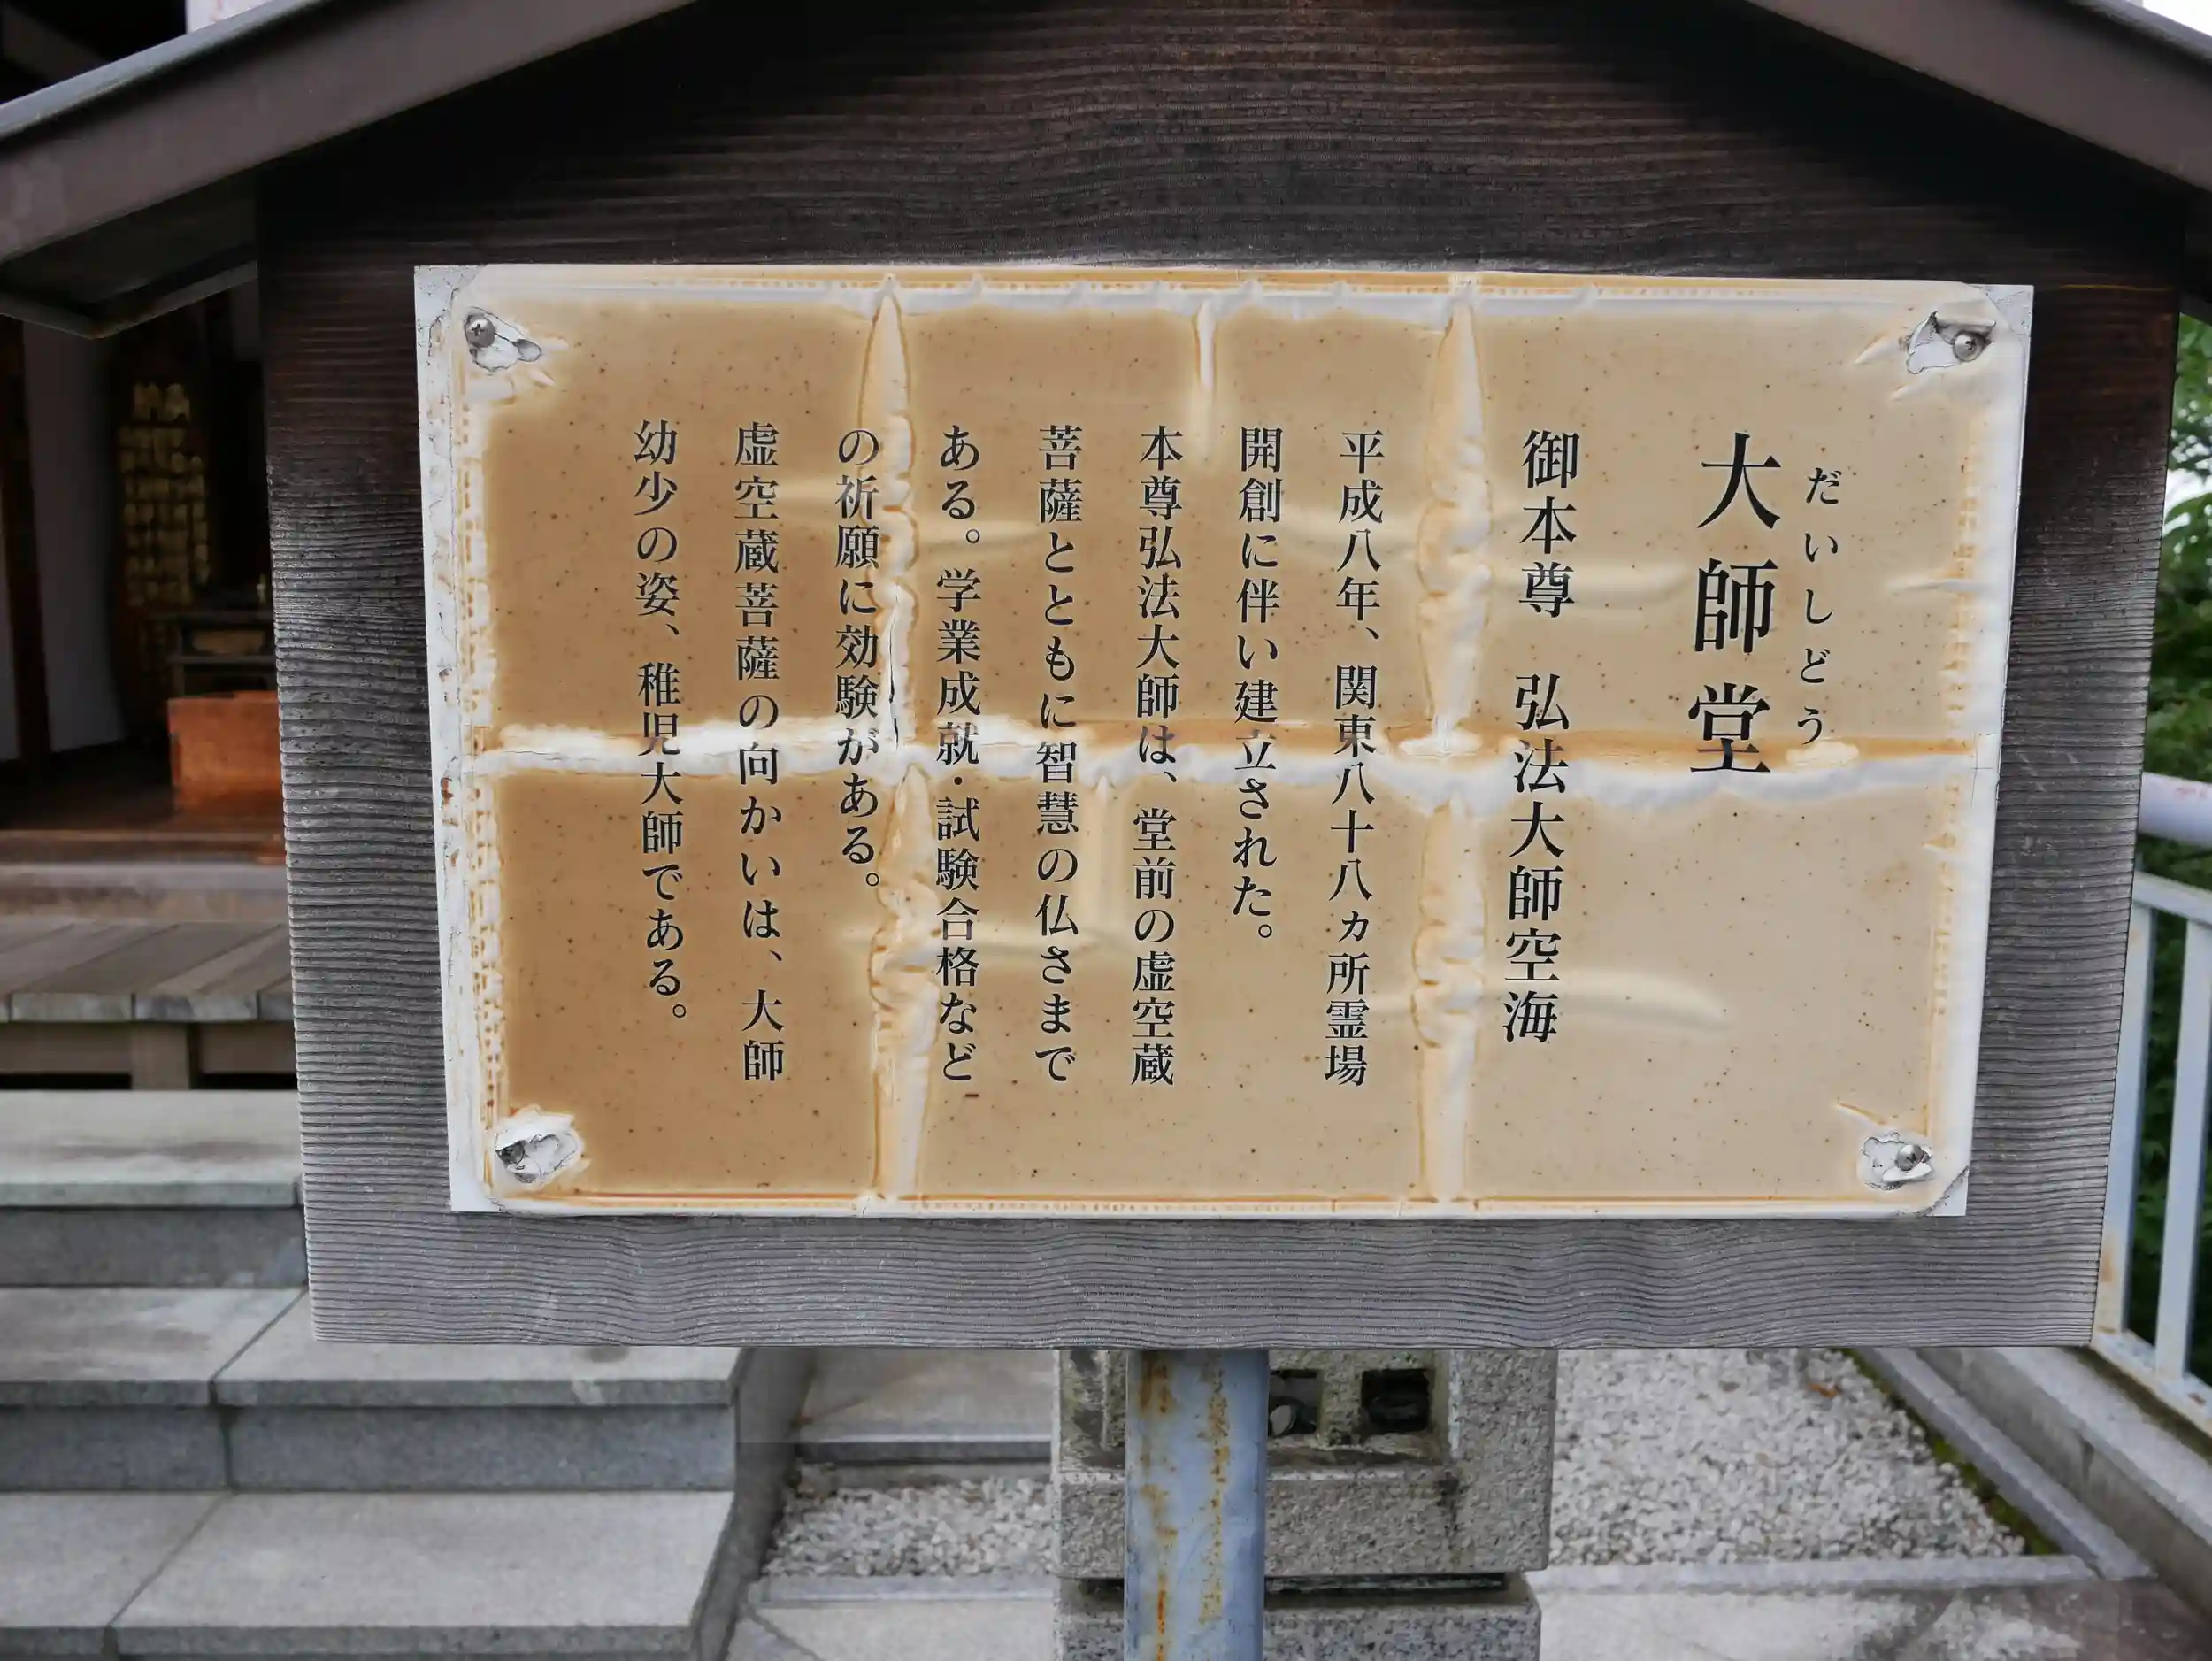 だいしどう
大師堂
御本尊　弘法大師空海
平成八年、関東八十八ヵ所霊場
開創に伴い建立された。
本尊弘法大師は、堂前の虚空蔵
菩薩とともに智慧の仏さまで
ある。学業成就・試験合格など
の祈願に効験がある。
虚空蔵菩薩の向かいは、大師
幼少の姿、稚児大師である。